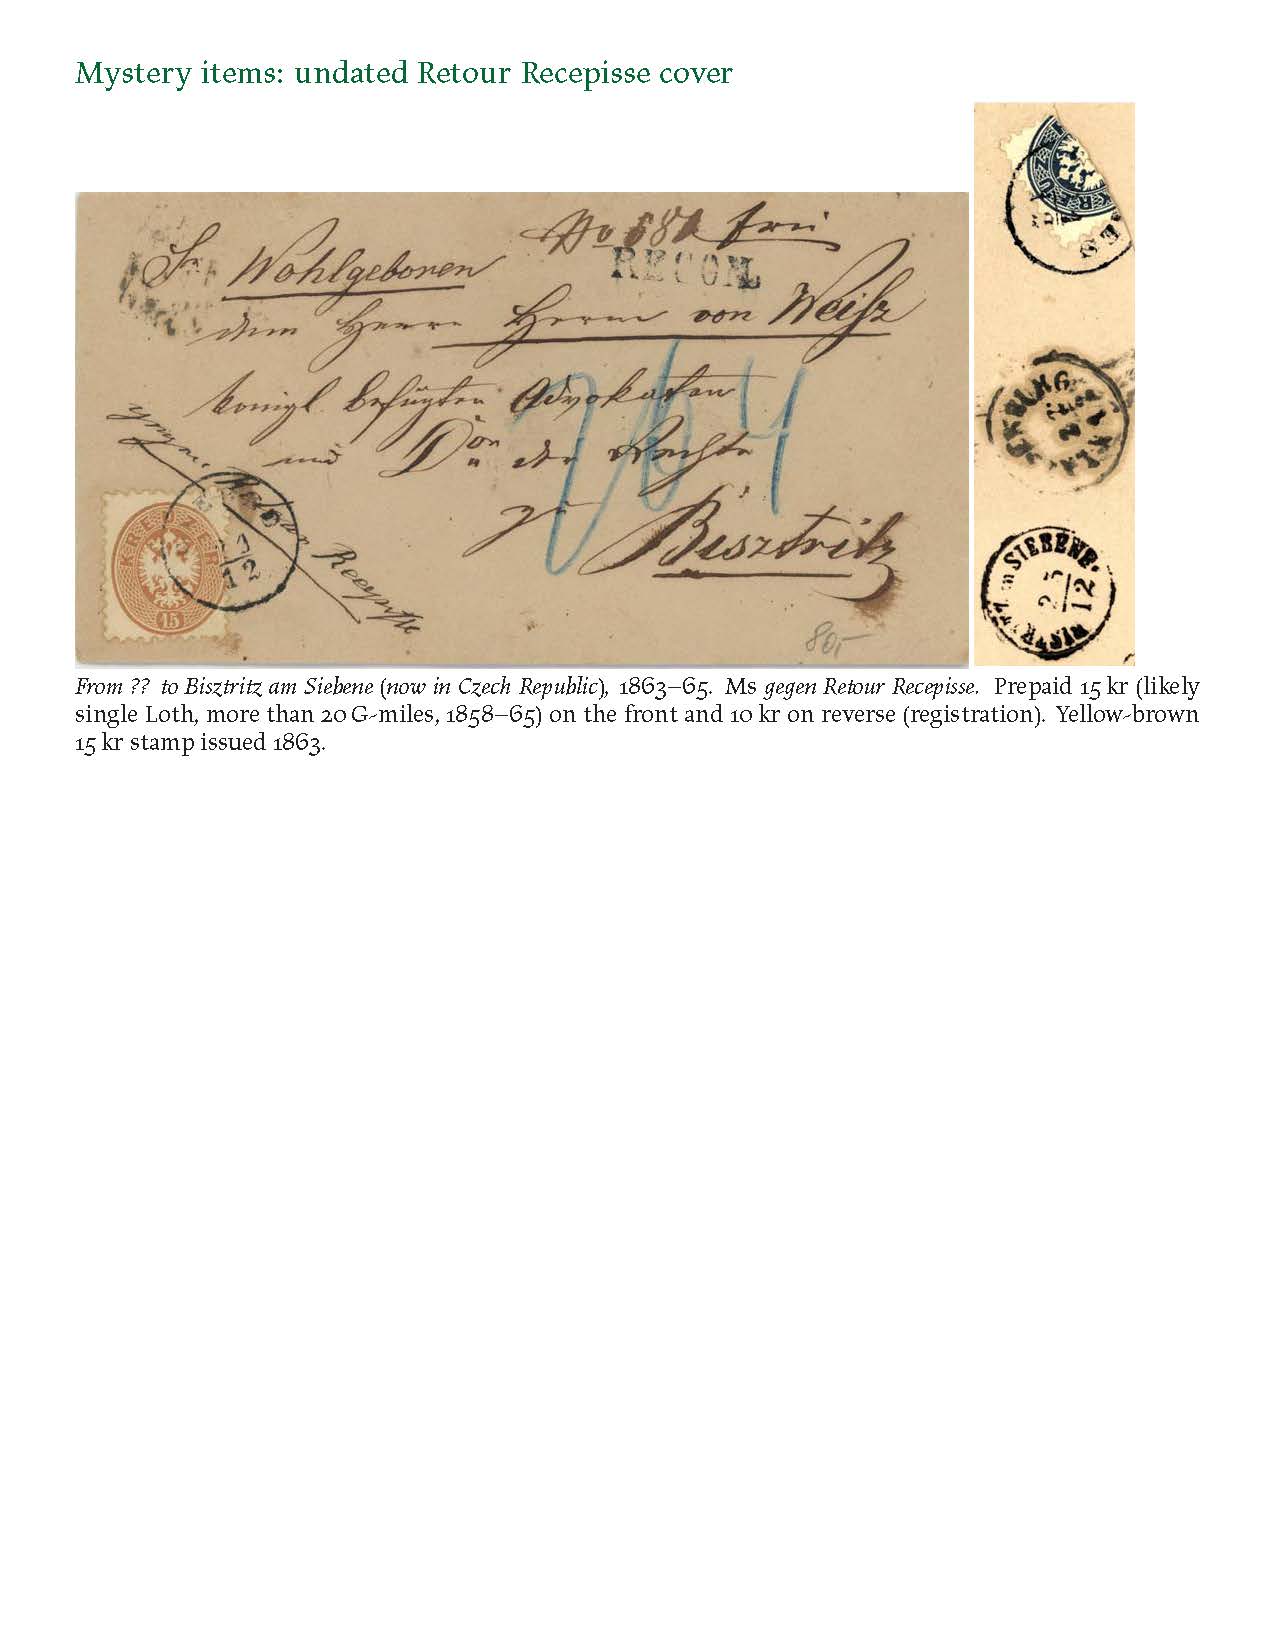 Mystery items: undated Retour Recepisse cover
No frei
RECOM.
Sr Wohlgeboren
dem Herrn Herrn von Weisz
königl. befugten Advokaten
und Don der Rechte
zu
Bisztritz
gegen Retour Recepisse
264
KREUZER
15
12
80,-
KREUZ
ES
KLAUSENBURG
BISTRITZ in SIEBENB.
25
12
From ?? to Bisztritz am Siebene (now in Czech Republic), 1863–65. Ms gegen Retour Recepisse. Prepaid 15 kr (likely
single Loth, more than 20 G-miles, 1858–65) on the front and 10 kr on reverse (registration). Yellow-brown
15 kr stamp issued 1863.